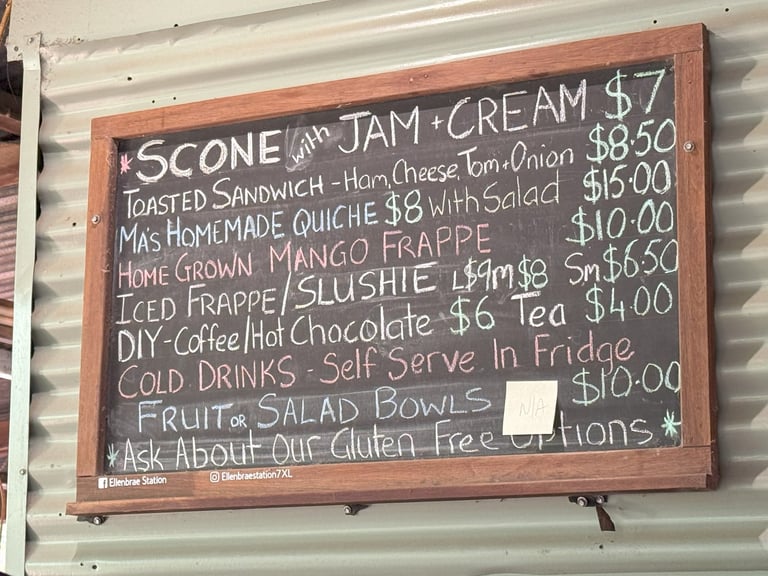 *SCONE with JAM + CREAM $7
TOASTED SANDWICH - Ham, Cheese, Tom + Onion $8.50
MA'S HOMEMADE QUICHE $8 With Salad $15.00
HOME GROWN MANGO FRAPPE $10.00
ICED FRAPPE/SLUSHIE L$9 m$8 Sm $6.50
DIY - Coffee/Hot Chocolate $6 Tea $4.00
COLD DRINKS - Self Serve In Fridge
FRUIT OR SALAD BOWLS N/A $10.00
*Ask About Our Gluten Free Options*
Ellenbrae Station Ellenbraestation7XL